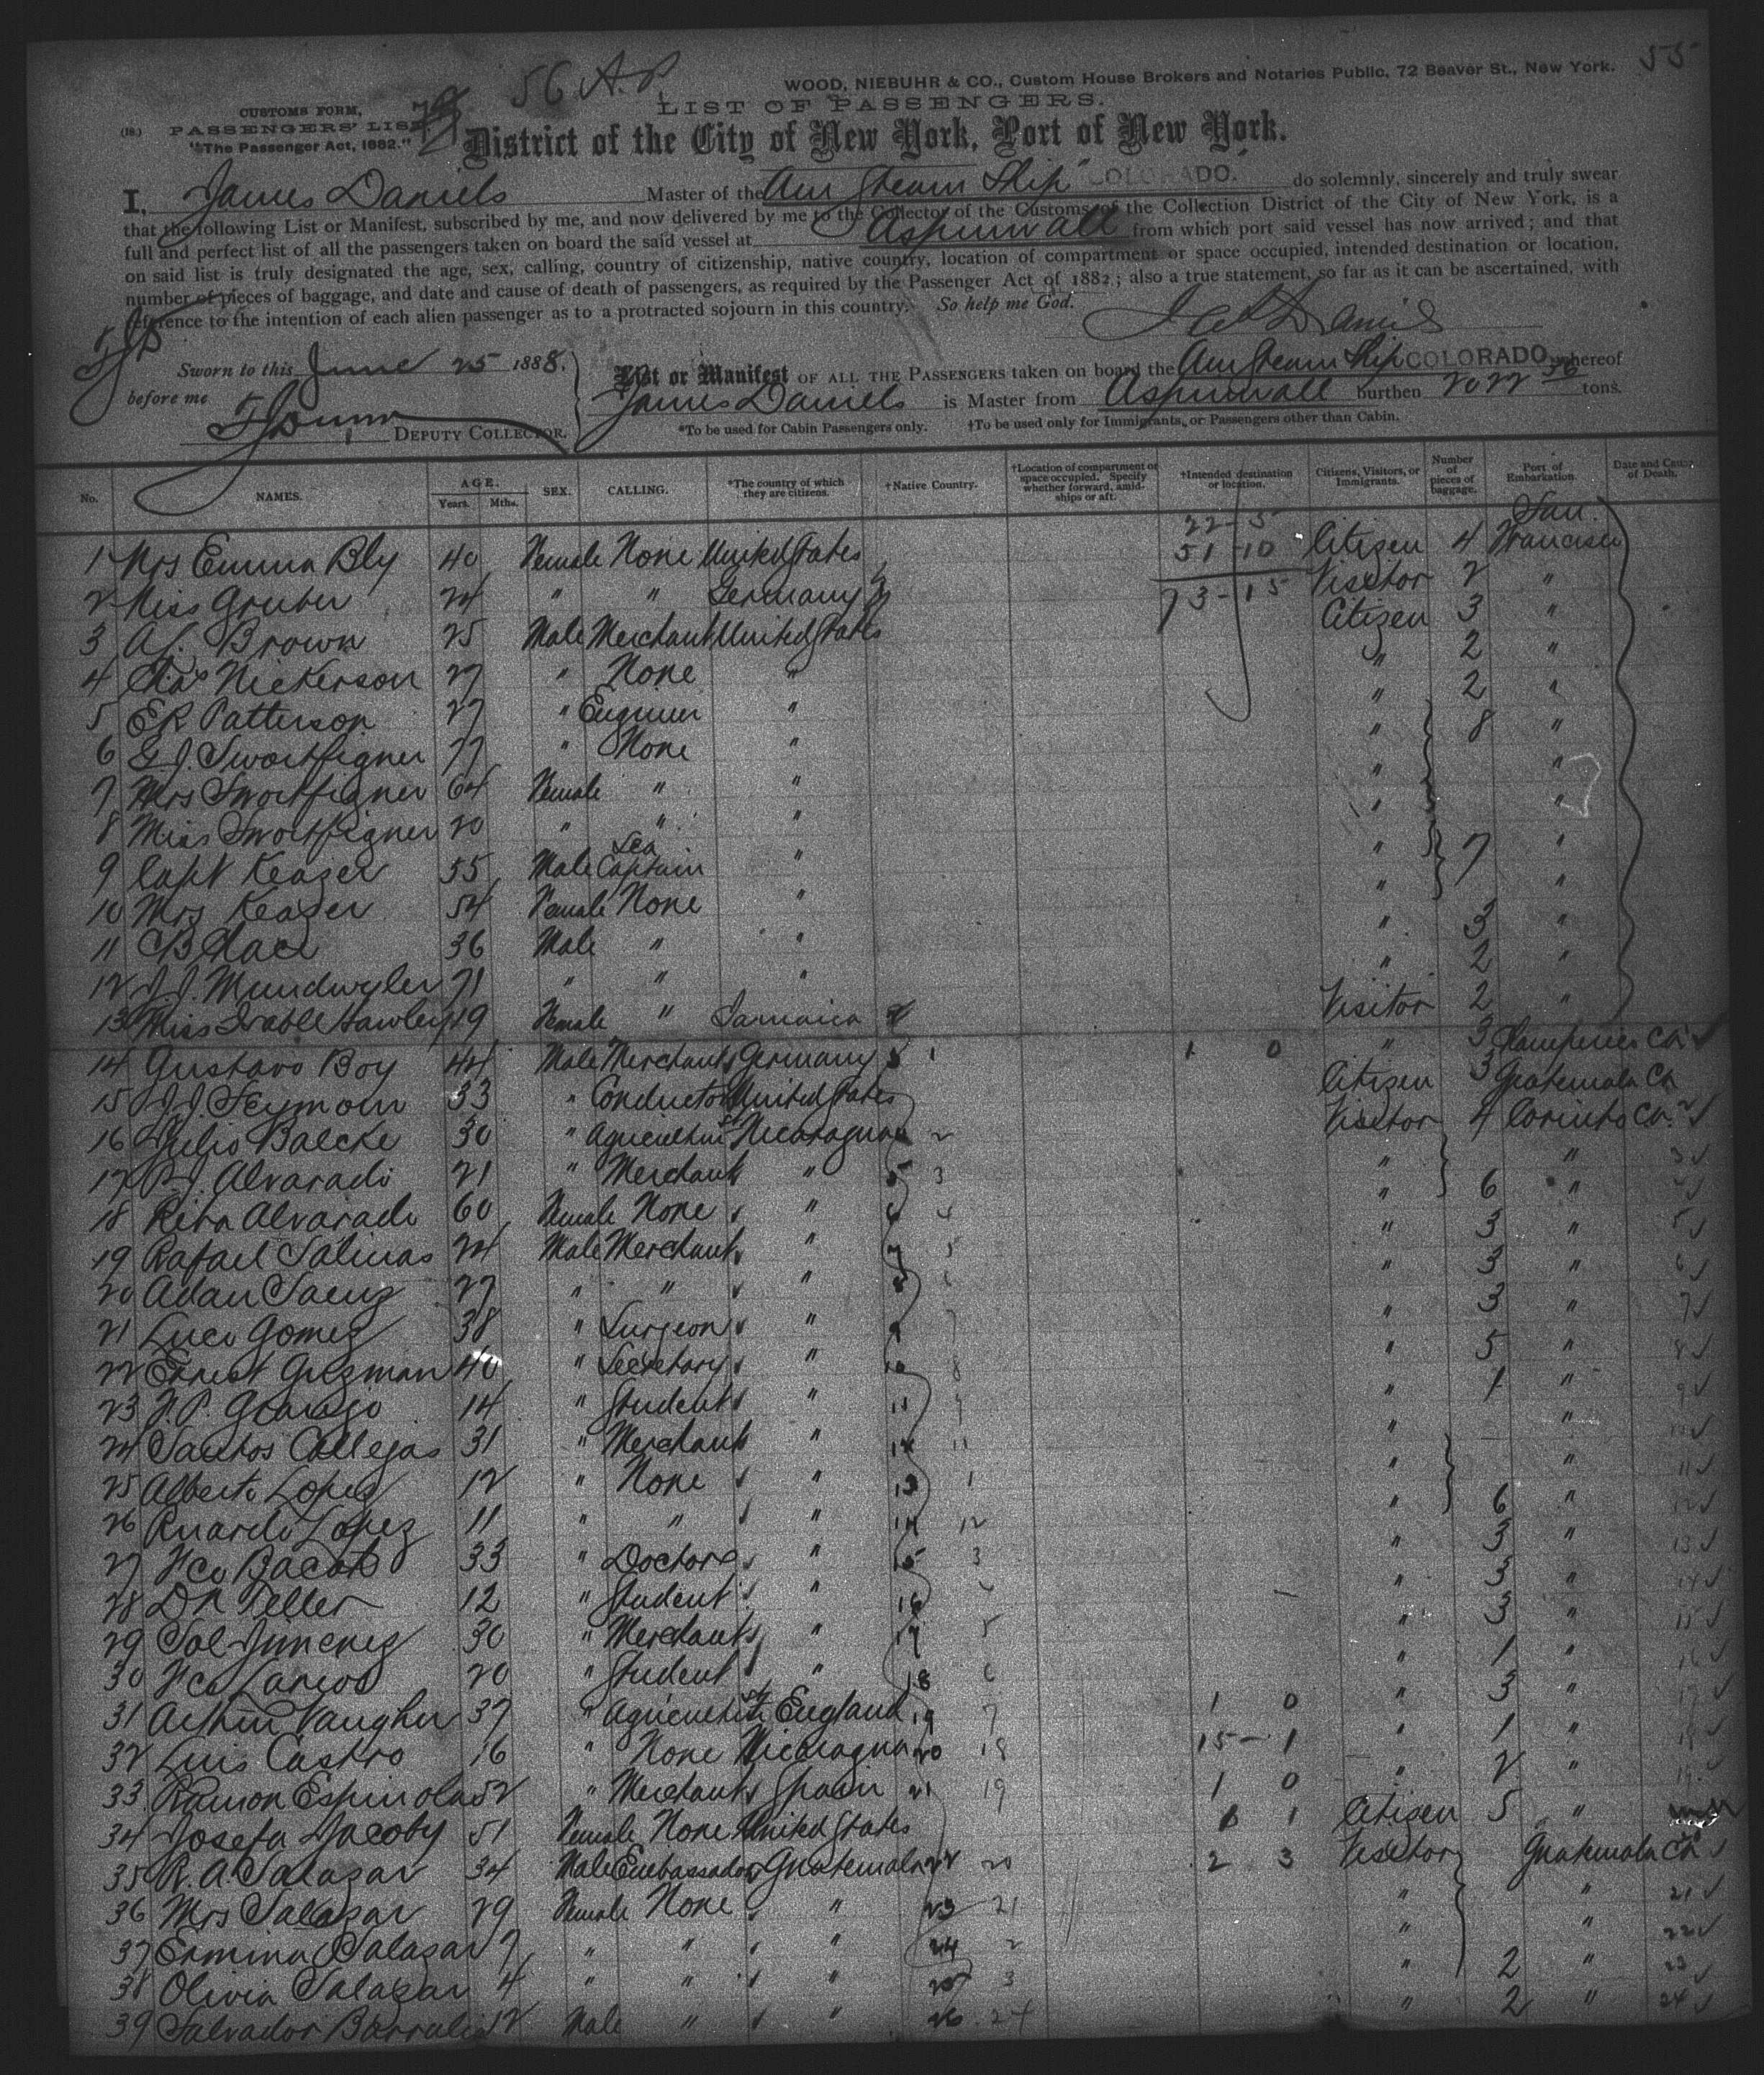 55
56 A.P.
WOOD, NIEBUHR & CO., Custom House Brokers and Notaries Public, 72 Beaver St., New York.
CUSTOMS FORM,
LIST OF PASSENGERS.
(18.) PASSENGERS' LIST.
"The Passenger Act, 1882."
District of the City of New York, Port of New York.
I, James Daniels Master of the Am Steam Ship "COLORADO." do solemnly, sincerely and truly swear
that the following List or Manifest, subscribed by me, and now delivered by me to the Collector of the Customs of the Collection District of the City of New York, is a
full and perfect list of all the passengers taken on board the said vessel at Aspinwall from which port said vessel has now arrived; and that
on said list is truly designated the age, sex, calling, country of citizenship, native country, location of compartment or space occupied, intended destination or location,
number of pieces of baggage, and date and cause of death of passengers, as required by the Passenger Act of 1882; also a true statement, so far as it can be ascertained, with
reference to the intention of each alien passenger as to a protracted sojourn in this country. So help me God.
Jas Daniels
Sworn to this June 25 1888.
before me
DEPUTY COLLECTOR.
List or Manifest OF ALL THE PASSENGERS taken on board the Am Steam Ship COLORADO whereof
James Daniels is Master from Aspinwall burthen 2022 36 tons.
*To be used for Cabin Passengers only. †To be used only for Immigrants, or Passengers other than Cabin.
No. NAMES. AGE. Years. Mths. SEX. CALLING. *The country of which they are citizens. †Native Country. †Location of compartment or space occupied. Specify whether forward, amidships or aft. †Intended destination or location. Citizens, Visitors, or Immigrants. Number of pieces of baggage. Port of Embarkation. Date and Cause of Death.
22-5
51-10
73-15
1 Mrs Emma Bly 40 Female None United States Citizen 4 San Francisco
2 Miss Gruber 24 " " Germany Visitor 2 "
3 A. Brown 25 Male Merchant United States Citizen 3 "
4 Chas Nickerson 29 " None " " 2 "
5 ER Patterson 27 " Engineer " " 2 "
6 G.J. Swortfigner 77 " None " " 8 "
7 Mrs Swortfigner 64 Female " " " "
8 Miss Swortfigner 20 " " " " "
9 Capt Keazer 55 Male Sea Captain " " 7 "
10 Mrs Keazer 54 Female None " " "
11 CB 36 Male " " " 3 "
12 J.J. Mundwyler 71 " " " " 2 "
13 Miss Isable Hawley 19 Female " Jamaica Visitor 2 "
14 Gustavo Boy 44 Male Merchant Germany 1 1 0 " 3 Champerico CA
15 J.J. Seymour 33 " Conductor United States Citizen 3 Guatemala CA
16 Julio Balcke 30 " Agriculturist Nicaragua 2 Visitor 4 Corinto CA. 2
17 P.J. Alvarado 21 " Merchant " 5 3 " " 3
18 Rita Alvarado 60 Female None " 6 4 " 6 "
19 Rafael Salinas 24 Male Merchant " 7 5 " 3 " 5
20 Adan Saenz 27 " " " 8 6 " 3 " 6
21 Luco Gomez 38 " Surgeon " 9 7 " 3 " 7
22 Ernest Guzman 40 " Secretary " 10 8 " 5 " 8
23 14 " Student " 11 9 " 1 " 9
24 Santos Callejas 31 " Merchant " 12 11 " "
25 Alberto Lopez 12 " None " 13 1 " " 11
26 Ruardo Lopez 11 " " " 14 12 " 6 " 12
27 33 " Doctor " 15 3 " 3 " 13
28 DR Teller 12 " Student " 16 " 3 " 14
29 Sol Jimenez 30 " Merchant " 17 5 " 3 " 15
30 Fco Larios 20 " Student " 18 6 " 1 " 16
31 Arthur Vaugher 37 " Agriculturist England 19 7 1 0 " 3 " 17
32 Luis Castro 16 " None Nicaragua 20 18 15-1 " 1 " 18
33 Ramon Espinola 52 " Merchant Spain 21 19 1 0 " 2 " 19
34 Josefa Jacoby 51 Female None United States 1 Citizen 5 "
35 R.A. Salazar 34 Male Embassador Guatemala 22 20 2 3 Visitor Guatemala CA
36 Mrs Salazar 29 Female None " 23 21 " " 21
37 Ermina Salazar 7 " " " 24 2 " " 22
38 Olivia Salazar 4 " " " 25 3 " 2 " 23
39 Salvador 12 Male " " 26 24 " 2 " 24